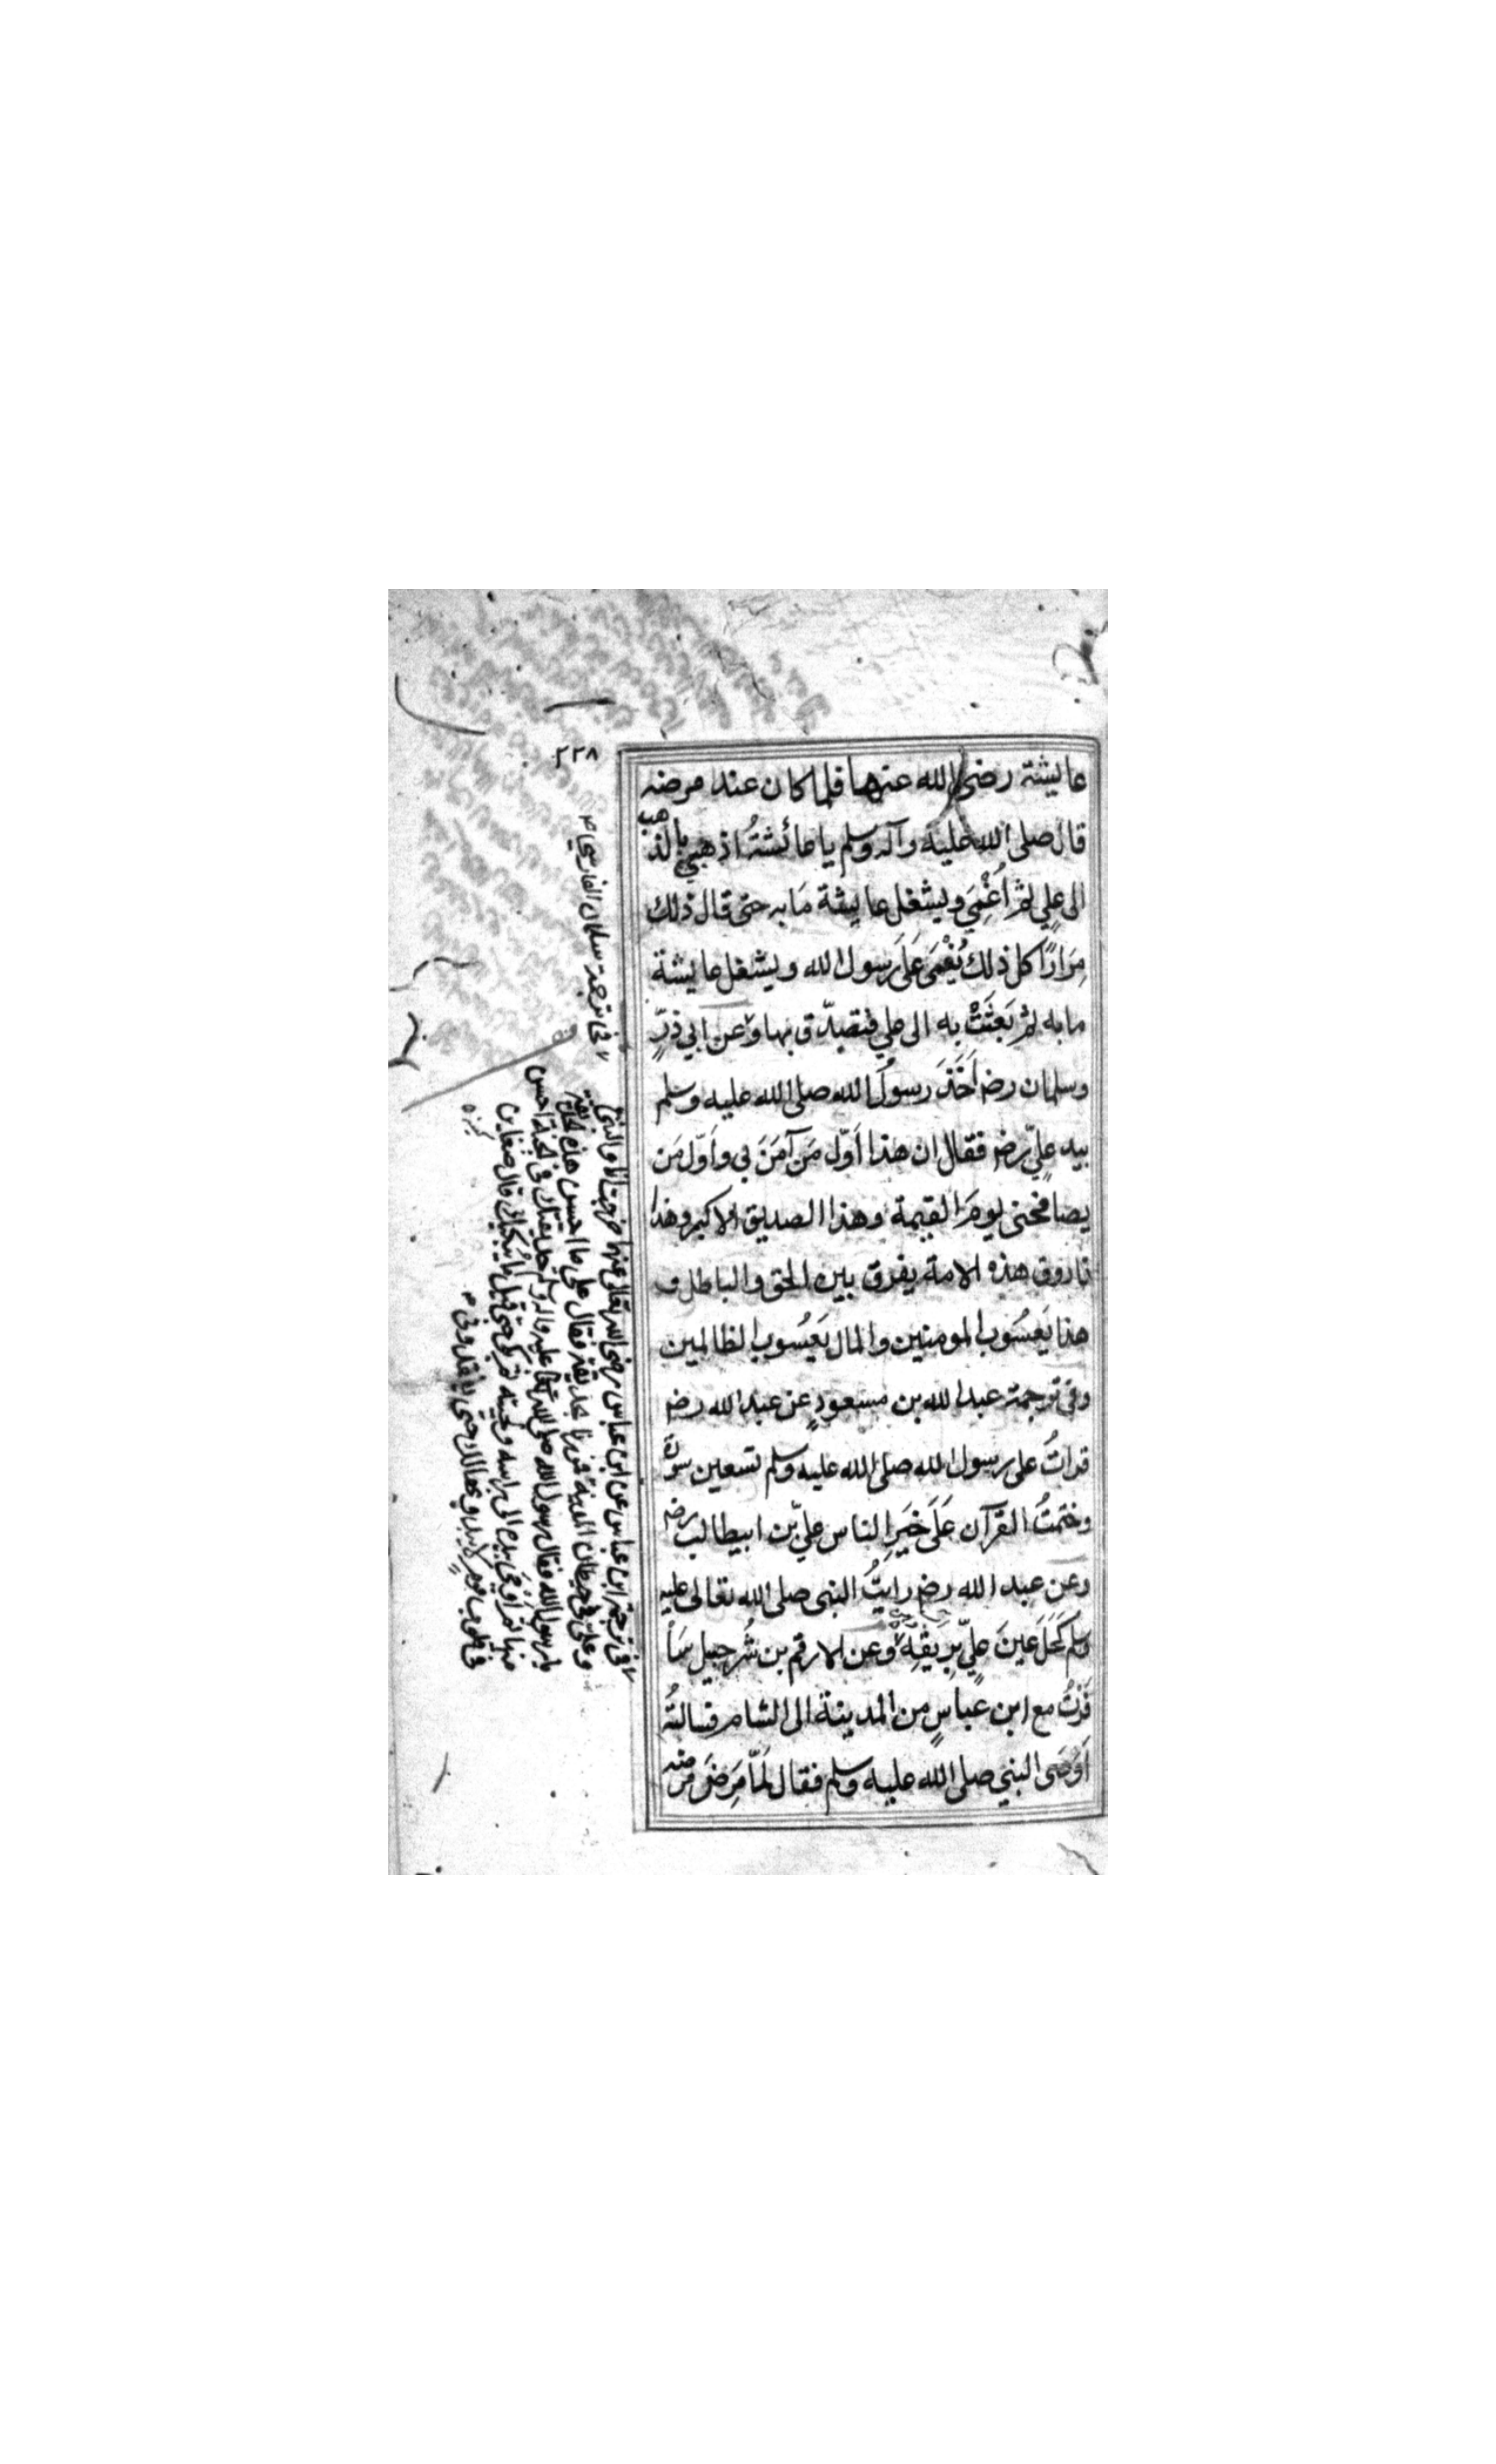 ٢٢٨
عايشة رضي الله عنها فلما كان عند مرضه
قال صلى الله عليه وآله وسلم يا عائشةُ اذهبي بالذهب
الى علي ثم اُغْمِيَ ويشغل عايشة مَا به حتى قال ذلك
مِرَارًا كل ذلك يُغْمَى عَلَى رسول الله ويشغل عايشة
ما به ثم بَعَثَتْ به الى علي فتصدّق بها وعن ابي ذرٍّ
وسلمان رضـ اَخَذَ رسولُ الله صلى الله عليه وسلم
بيد عليّ رضـ فقال ان هذا اَوّل مَن آمَنَ بي واَوّل مَن
يصافحني يومَ القيمة وهذا الصديق الاكبر وهذا
فاروق هذه الامة يفرق بين الحق والباطل و
هذا يَعسُوب المومنين والمال يَعسُوب الظالمين
وفي ترجمة عبد الله بن مسعودٍ عن عبد الله رضـ
قراتُ على رسول الله صلى الله عليه وسلم تسعين سورة
وختمتُ القرآن عَلَى خَيرِ الناس عليّ بن ابيطالب رضـ
وعن عبد الله رضـ رايتُ النبي صلى الله تعالى عليه
وسلم كَحَلَ عينَ عليّ بِرِيقِهِ وعن الارقم بن شُرحبيل سَا
فَرْتُ مع ابن عباسٍ من المدينة الى الشام فسالتُه
اَوْصَى النبي صلى الله عليه وسلم فقال لَمّا مَرِضَ مرضه
في ترجمة سلمان الفارسي
في ترجمة ابن عباس عن ابن عباس رضي الله تعالى عنها خرجت انا والنبي
وعلي في حيطان المدينة فمررنا بحديقة فقال علي ما احسن هذه الحديقة
يا رسول الله فقال رسول الله صلى الله تعالى عليه واله وسلم حديقتك في الجنة احسن
منها ثم اَوْمَى بيده الى راسه ولحيته ثم بكى حتى قيل ما يُبكيك قال ضغاين
في قلوب قومٍ لا يبدونها لك حتى يفقدوني